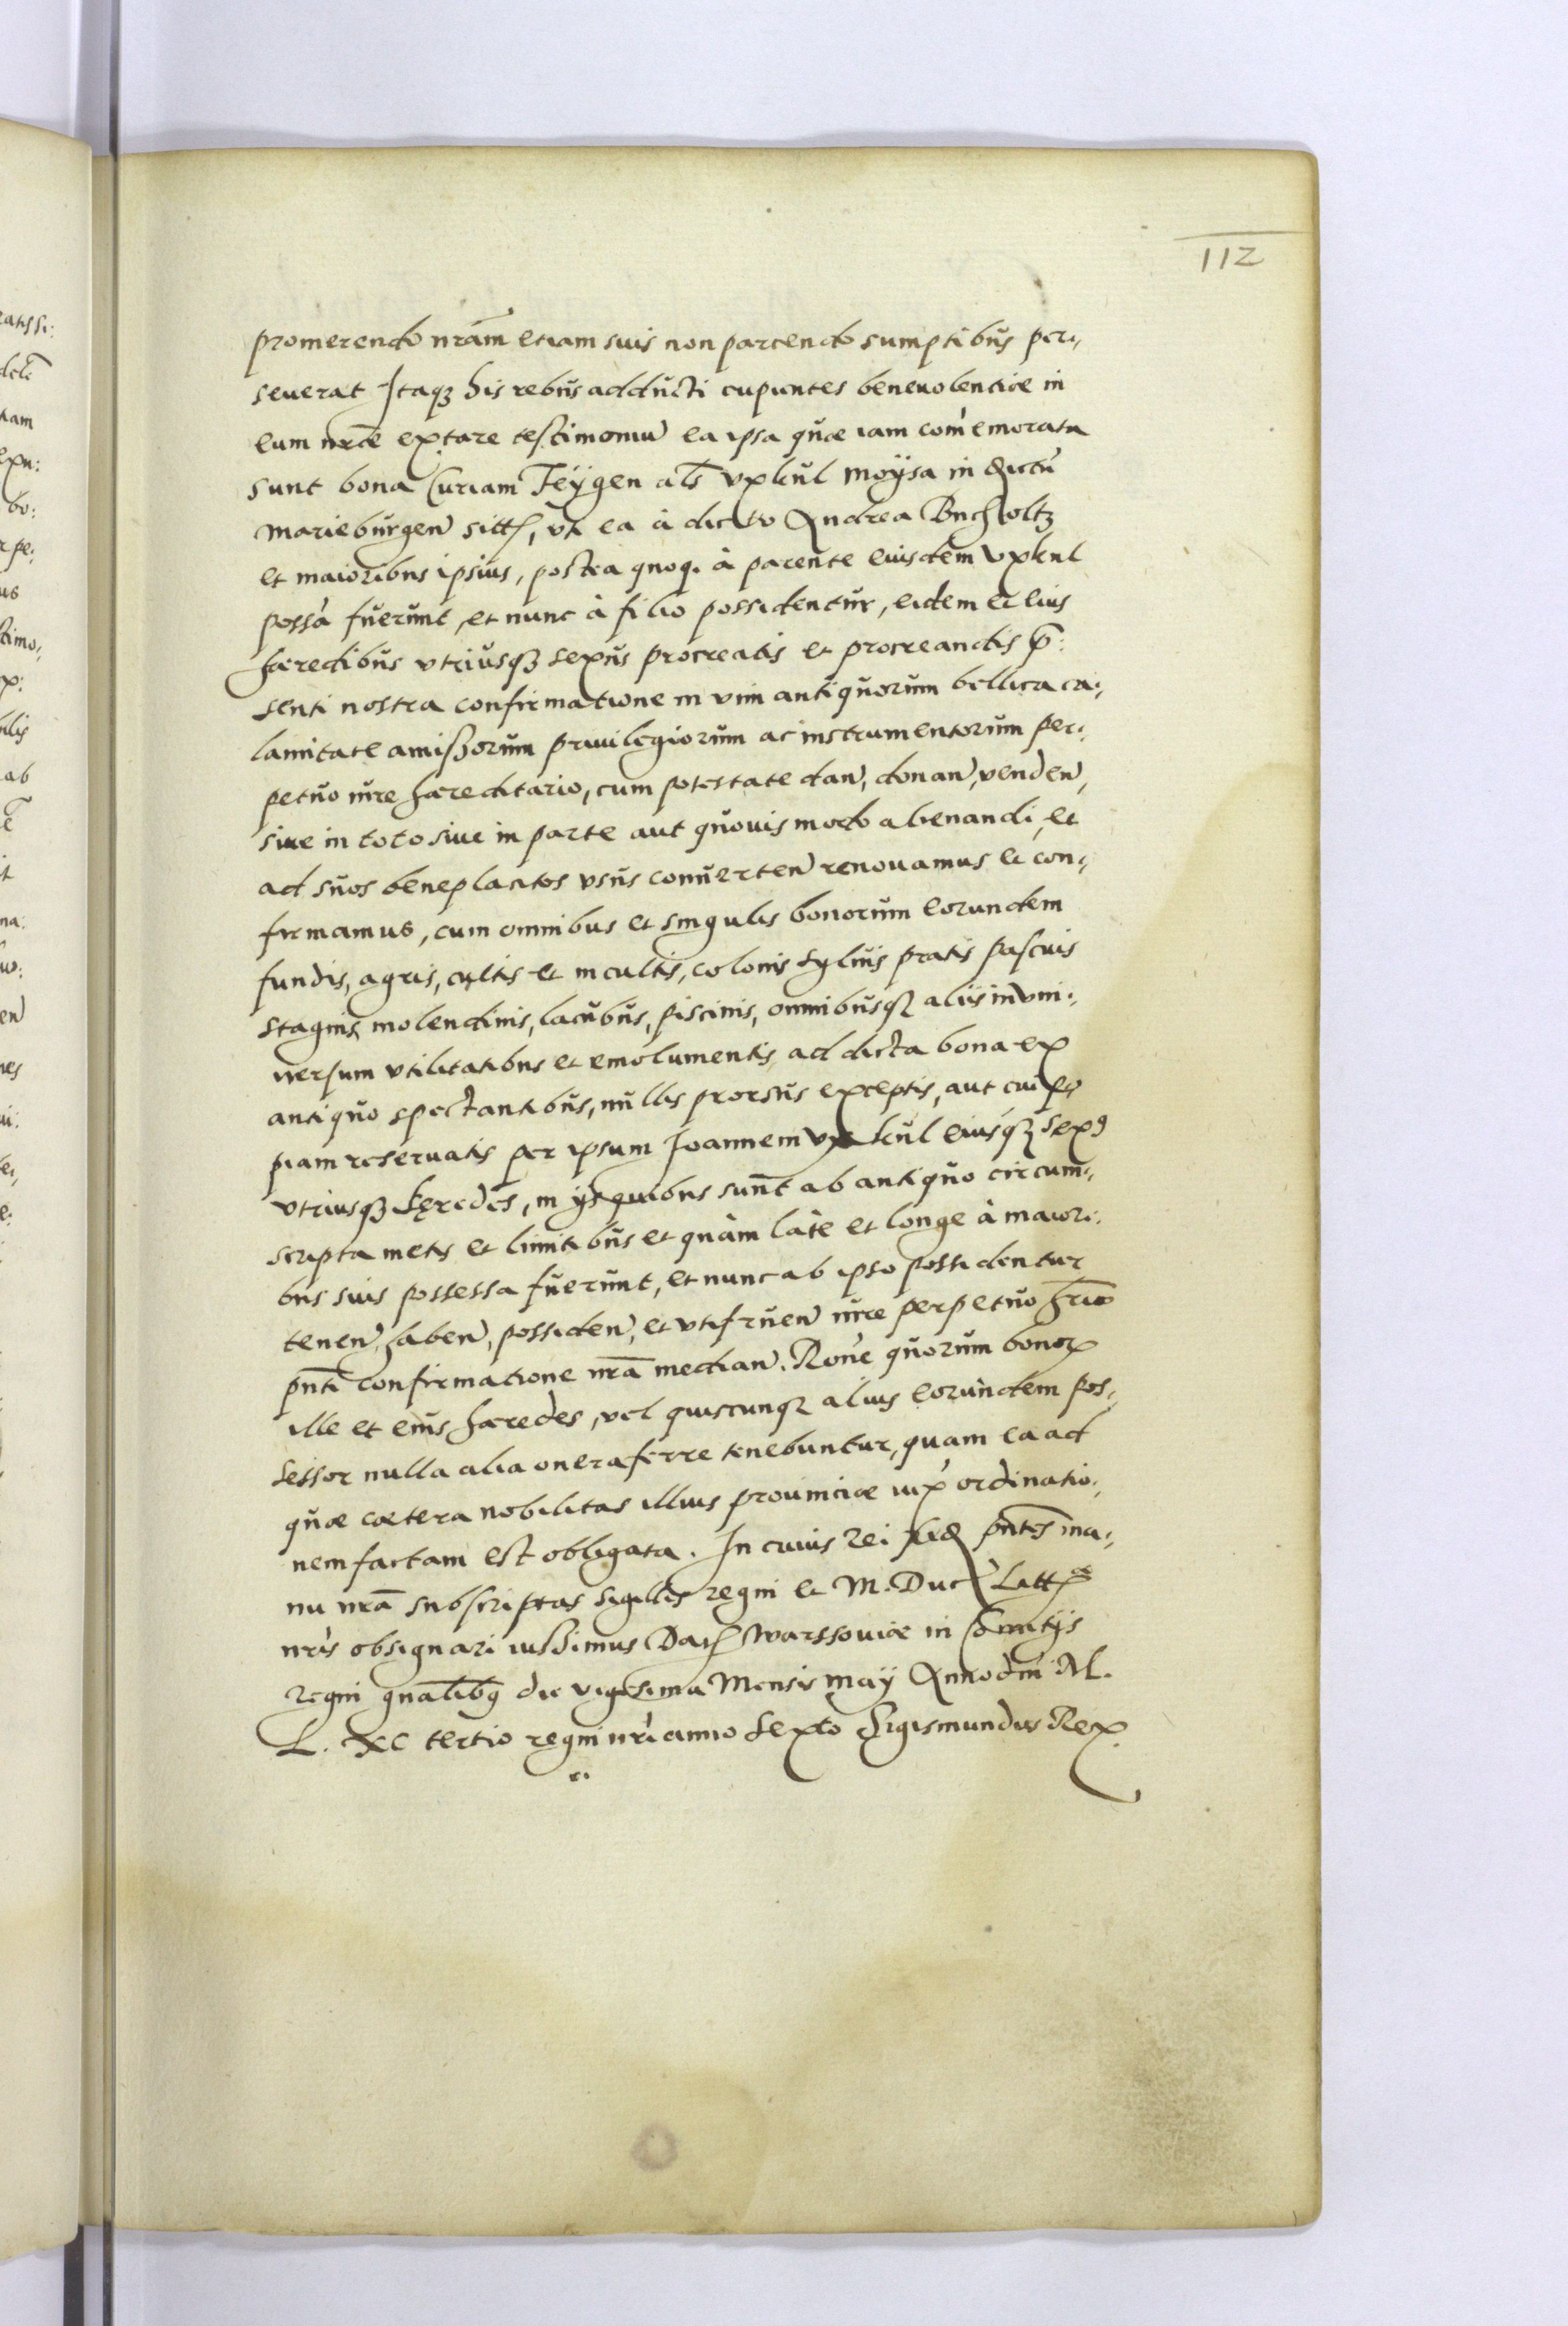 112
promerendo nrãm etiam suis non parcendo sumptibus per,
seuerat Itaqȝ his rebus adducti cupientes beneuolentiæ in
eum nrẽ extare testimoniũ ea ipsa quæ iam com̃emorata
sunt bona Curiam Feÿgen als̃ Vxkul Moÿsa in districtũ
Marieburgen̄ sitt, vti ea à dicto Andrea Bucholtz
et maioribus ipsius, postea quoq. à parente eiusdem Vxkul
possã fuerunt, et nunc à filio possidentur, eidem et eius
hæredibus vtriusqȝ sexus procreatis et procreandis p̃:
senti nostra confirmatione in vim antiquorum bellica ca,
lamitate amißorum priuilegiorum ac instrumentorum per,
petuo iure hæreditario, cum potestate dan̄, donan̄, venden̄,
siue in toto siue in parte aut quouis modo alienandi, et
ad suos beneplacitos vsus conuerten̄ renouamus et con,
firmamus, cum omnibus et singulis bonorum eorundem
fundis, agris, cultis et incultis, colonis syluis pratis pascuis
stagnis, molendinis, lacubus, piscinis, omnibusqȝ aliis in vni,
uersum vtilitatibus et emolumentis ad dicta bona ex
antiquo spectantibus, nullis prorsus exceptis, aut cuip̃
piam reseruatis per ipsum Joannem Vxkul eiusqȝ sexꝰ
vtriusqȝ hęredes, in ÿs quibus sunt ab antiquo circum,
scripta metis et limitibus et quàm làte et longe à maiori,
bus suis possessa fuerunt, et nunc ab ipso possidentur
tenen̄, haben̄, possiden̄, et vtifruen̄ iure perpetuo hr̃io
pñti confirmatione nrã median̄. Rone quorum bonoꝝ
ille et eius hæredes, vel quicunqȝ alius eorundem pos,
sessor nulla alia onera ferre tenebuntur, quam ea ad
quæ cætera nobilitas illius prouinciæ iuxᵃ ordinatio,
nem factam est obligata. In cuius rei fid pñtes ma,
nu nrã subscriptas sigillis regni et M. Duc Litt
nris obsignari iussimus Dat Warssouiæ in Comitÿs
regni gñalibꝰ die vigesima Mensis Maÿ Anno dñi M.
L. XC tertio regni nri anno sexto Sigismundus Rex